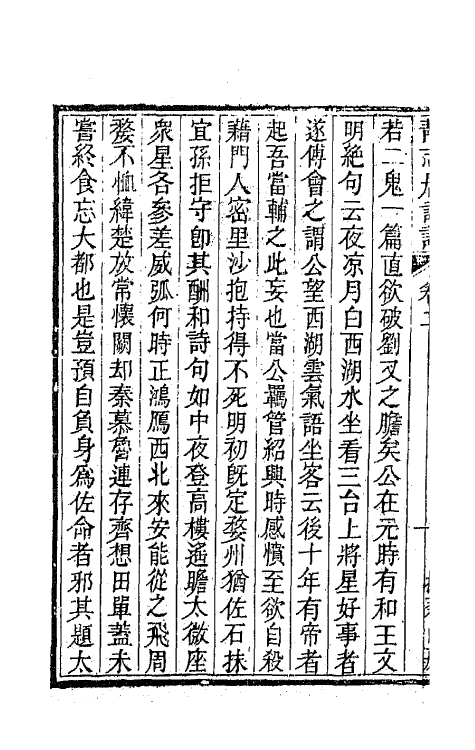 靜志居詩話 卷二
若二鬼一篇直欲破劉叉之膽矣公在元時有和王文
明絕句云夜凉月白西湖水坐看三台上將星好事者
遂傅會之謂公望西湖雲氣語坐客云後十年有帝者
起吾當輔之此妄也當公羈管紹興時感憤至欲自殺
藉門人密里沙抱持得不死明初旣定婺州猶佐石抹
宜孫拒守卽其酬和詩句如中夜登高樓遙瞻太微座
衆星各參差威弧何時正鴻鴈西北來安能從之飛周
嫠不恤緯楚放常懷闕却秦慕魯連存齊想田單蓋未
嘗終食忘大都也是豈預自負身爲佐命者邪其題太